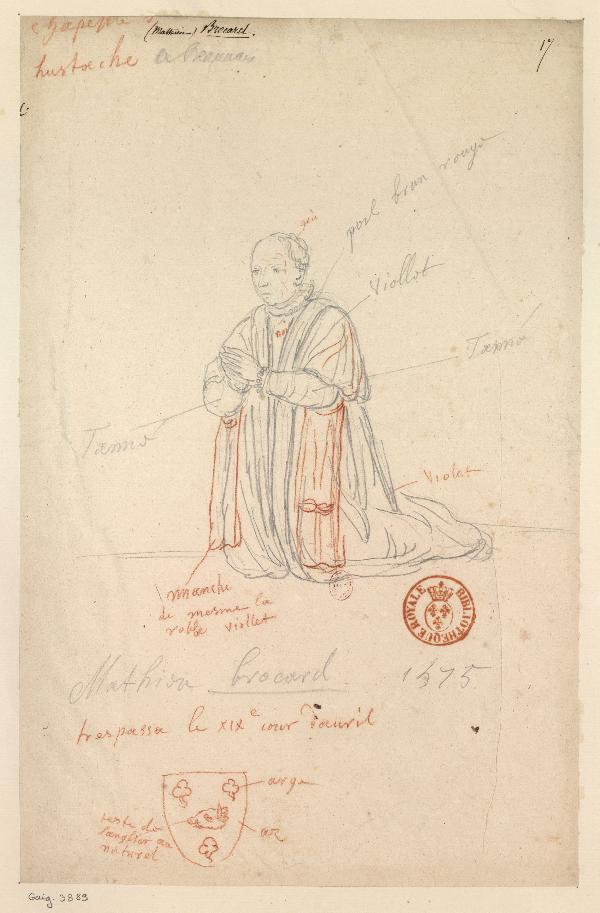 (Mathieu) Brocard.
hustache a Beauuais
17
gris
poil brun rouge
Viollot
Tanné
Tanné
Violet
manche
de mesme la
robbe viollet
BIBLIOTHEQUE ROYALE
Mathieu brocard 1575
trespassa le XIXe iour dauril
arge
teste de
sanglier au
naturel
az
Gaig. 3889